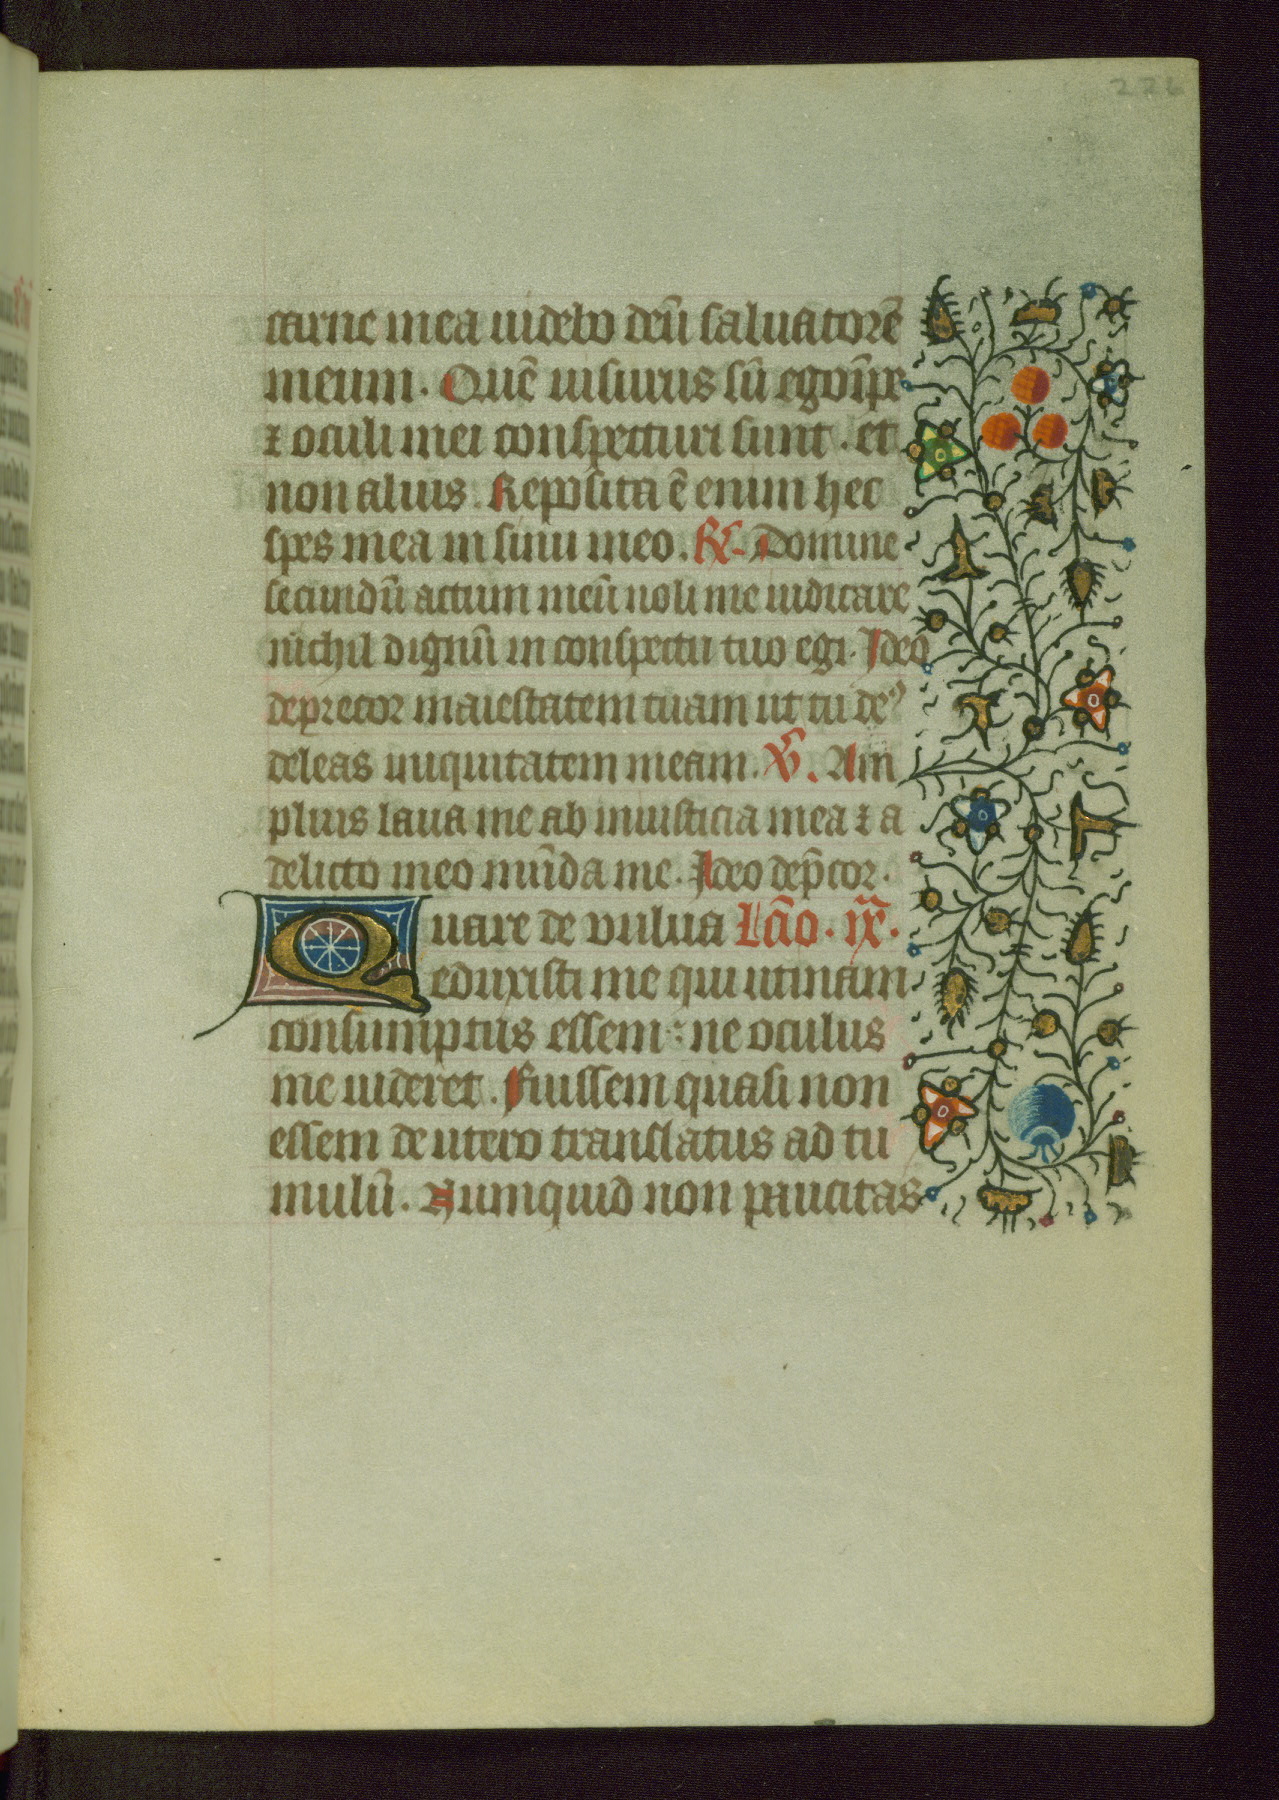 226
carne mea uidebo deū saluatorē
meum. Quē uisurus sū ego ip̄e
⁊ oculi mei conspecturi sunt. et
non alius. Reposita ē enim hec
spes mea in sinu meo. R̸. Domine
secundū actum meū noli me iudicare
nichil dignū in conspectu tuo egi. Ideo
deprecor maiestatem tuam ut tu de⁹
deleas iniquitatem meam. V̸. Am
plius laua me ab iniusticia mea ⁊ a
delicto meo mūda me. Ideo dep̄cor.
Quare de uulua Lc̄io. ix.
eduxisti me qui utinam
consumptus essem: ne oculus
me uideret. Fuissem quasi non
essem de utero translatus ad tu
mulū. Numquid non paucitas